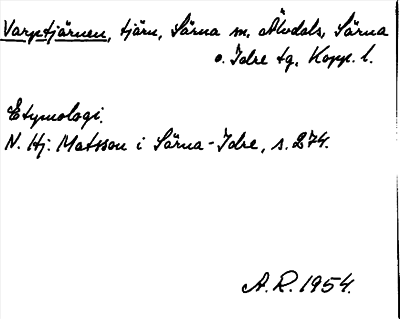 Varptjärnen, tjärn, Särna m. Älvdals, Särna
o. Idre tg, Kopp. l.
Etymologi.
N. Hj. Matsson i Särna-Idre, s. 274.
A. R. 1954.